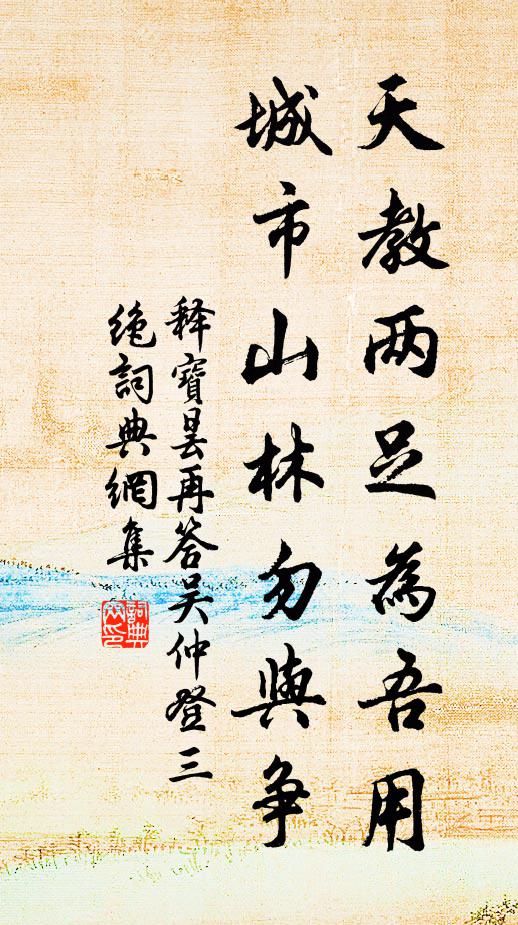 天教两足為吾用
城市山林勿與争
释寶昙再答吴仲登三
绝詞典網集